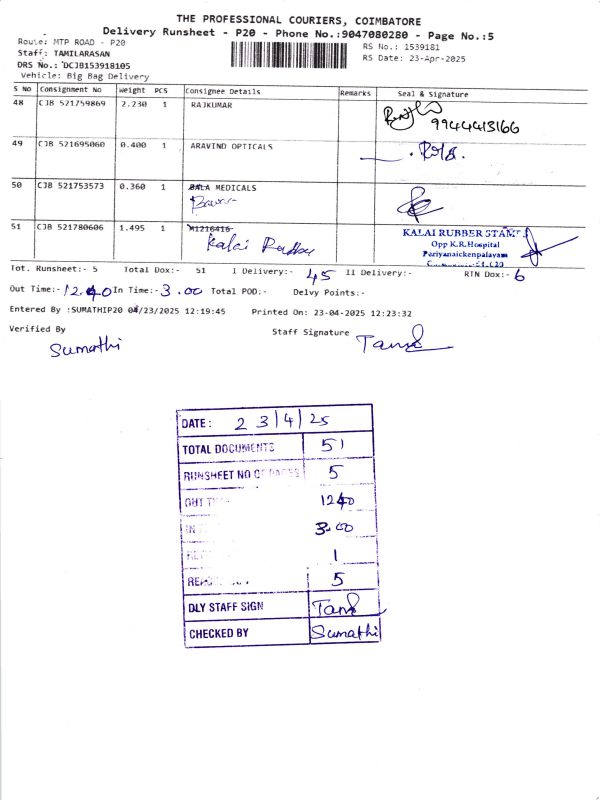 THE PROFESSIONAL COURIERS, COIMBATORE
Delivery Runsheet - P20 - Phone No.:9047080280 - Page No.:5
Route: MTP ROAD - P20
RS No.: 1539181
Staff: TAMILARASAN
RS Date: 23-Apr-2025
DRS No.: DCJB153918105
Vehicle: Big Bag Delivery
S No Consignment No Weight PCS Consignee Details Remarks Seal & Signature
48 CJB 521759869 2.230 1 RAJKUMAR
9944413166
49 CJB 521695060 0.400 1 ARAVIND OPTICALS
50 CJB 521753573 0.360 1 BALA MEDICALS
51 CJB 521780606 1.495 1 M1216416
Kalai Rubber
KALAI RUBBER STAMPS
Opp K.R.Hospital
Periyanaickenpalayam
Tot. Runsheet:- 5 Total Dox:- 51 I Delivery:- 45 II Delivery:- RTN Dox:- 6
Out Time:- 12.40 In Time:- 3.00 Total POD:- Delvy Points:-
Entered By :SUMATHIP20 04/23/2025 12:19:45 Printed On: 23-04-2025 12:23:32
Verified By
Staff Signature
Sumathi
DATE: 23/4/25
TOTAL DOCUMENTS 51
RUNSHEET NO OF PAGES 5
OUT 1240
IN 3.00
1
5
DLY STAFF SIGN
CHECKED BY Sumathi